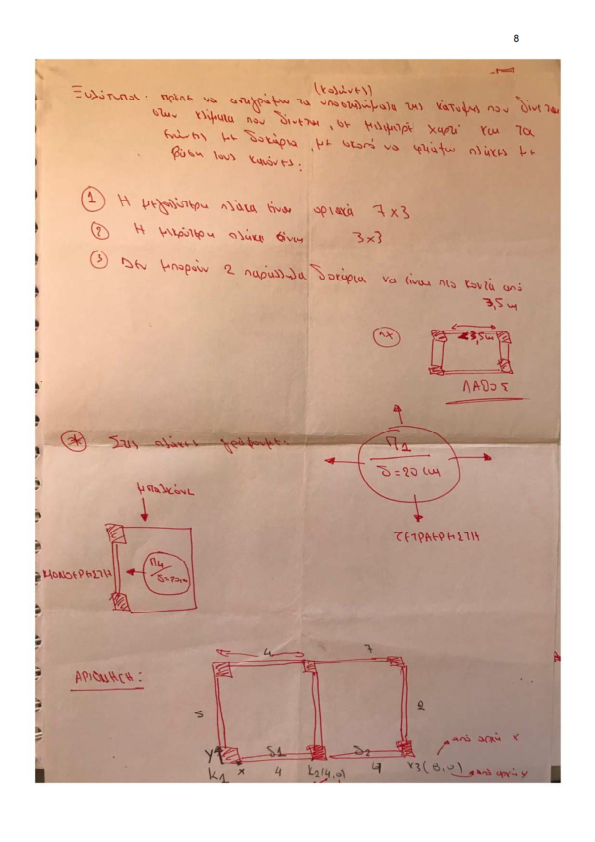 8
(κολώνες)
Ξυλότυποι: πρέπει να αντιγράψω τα υποστυλώματα της κάτοψης που δίνεται
στην κλίμακα που δίνεται, σε χαρτί και τα
ενώσεις με δοκάρια, με σκοπό να φτιάξω πλάκες με
βάση τους κανόνες:
1 Η μεγαλύτερη πλάκα είναι οριακά 7x3
2 Η μικρότερη πλάκα είναι 3x3
3 Δεν μπορούν 2 παράλληλα δοκάρια να είναι πιο κοντά από
3,5m
πχ
<3,5m
ΛΑΘΟΣ
* Στις πλάκες γράφουμε:
Π1
δ=20cm
ΤΕΤΡΑΕΡΗΣΤΗ
μπαλκόνι
Π4
δ=20cm
ΜΟΝΟΕΡΗΣΤΗ
ΑΡΙΘΜΗΣΗ:
4
7
5
y
δ1
δ2
από αρχή x
K1
x
4
K2(4,0)
4
K3(8,0)
από αρχή y